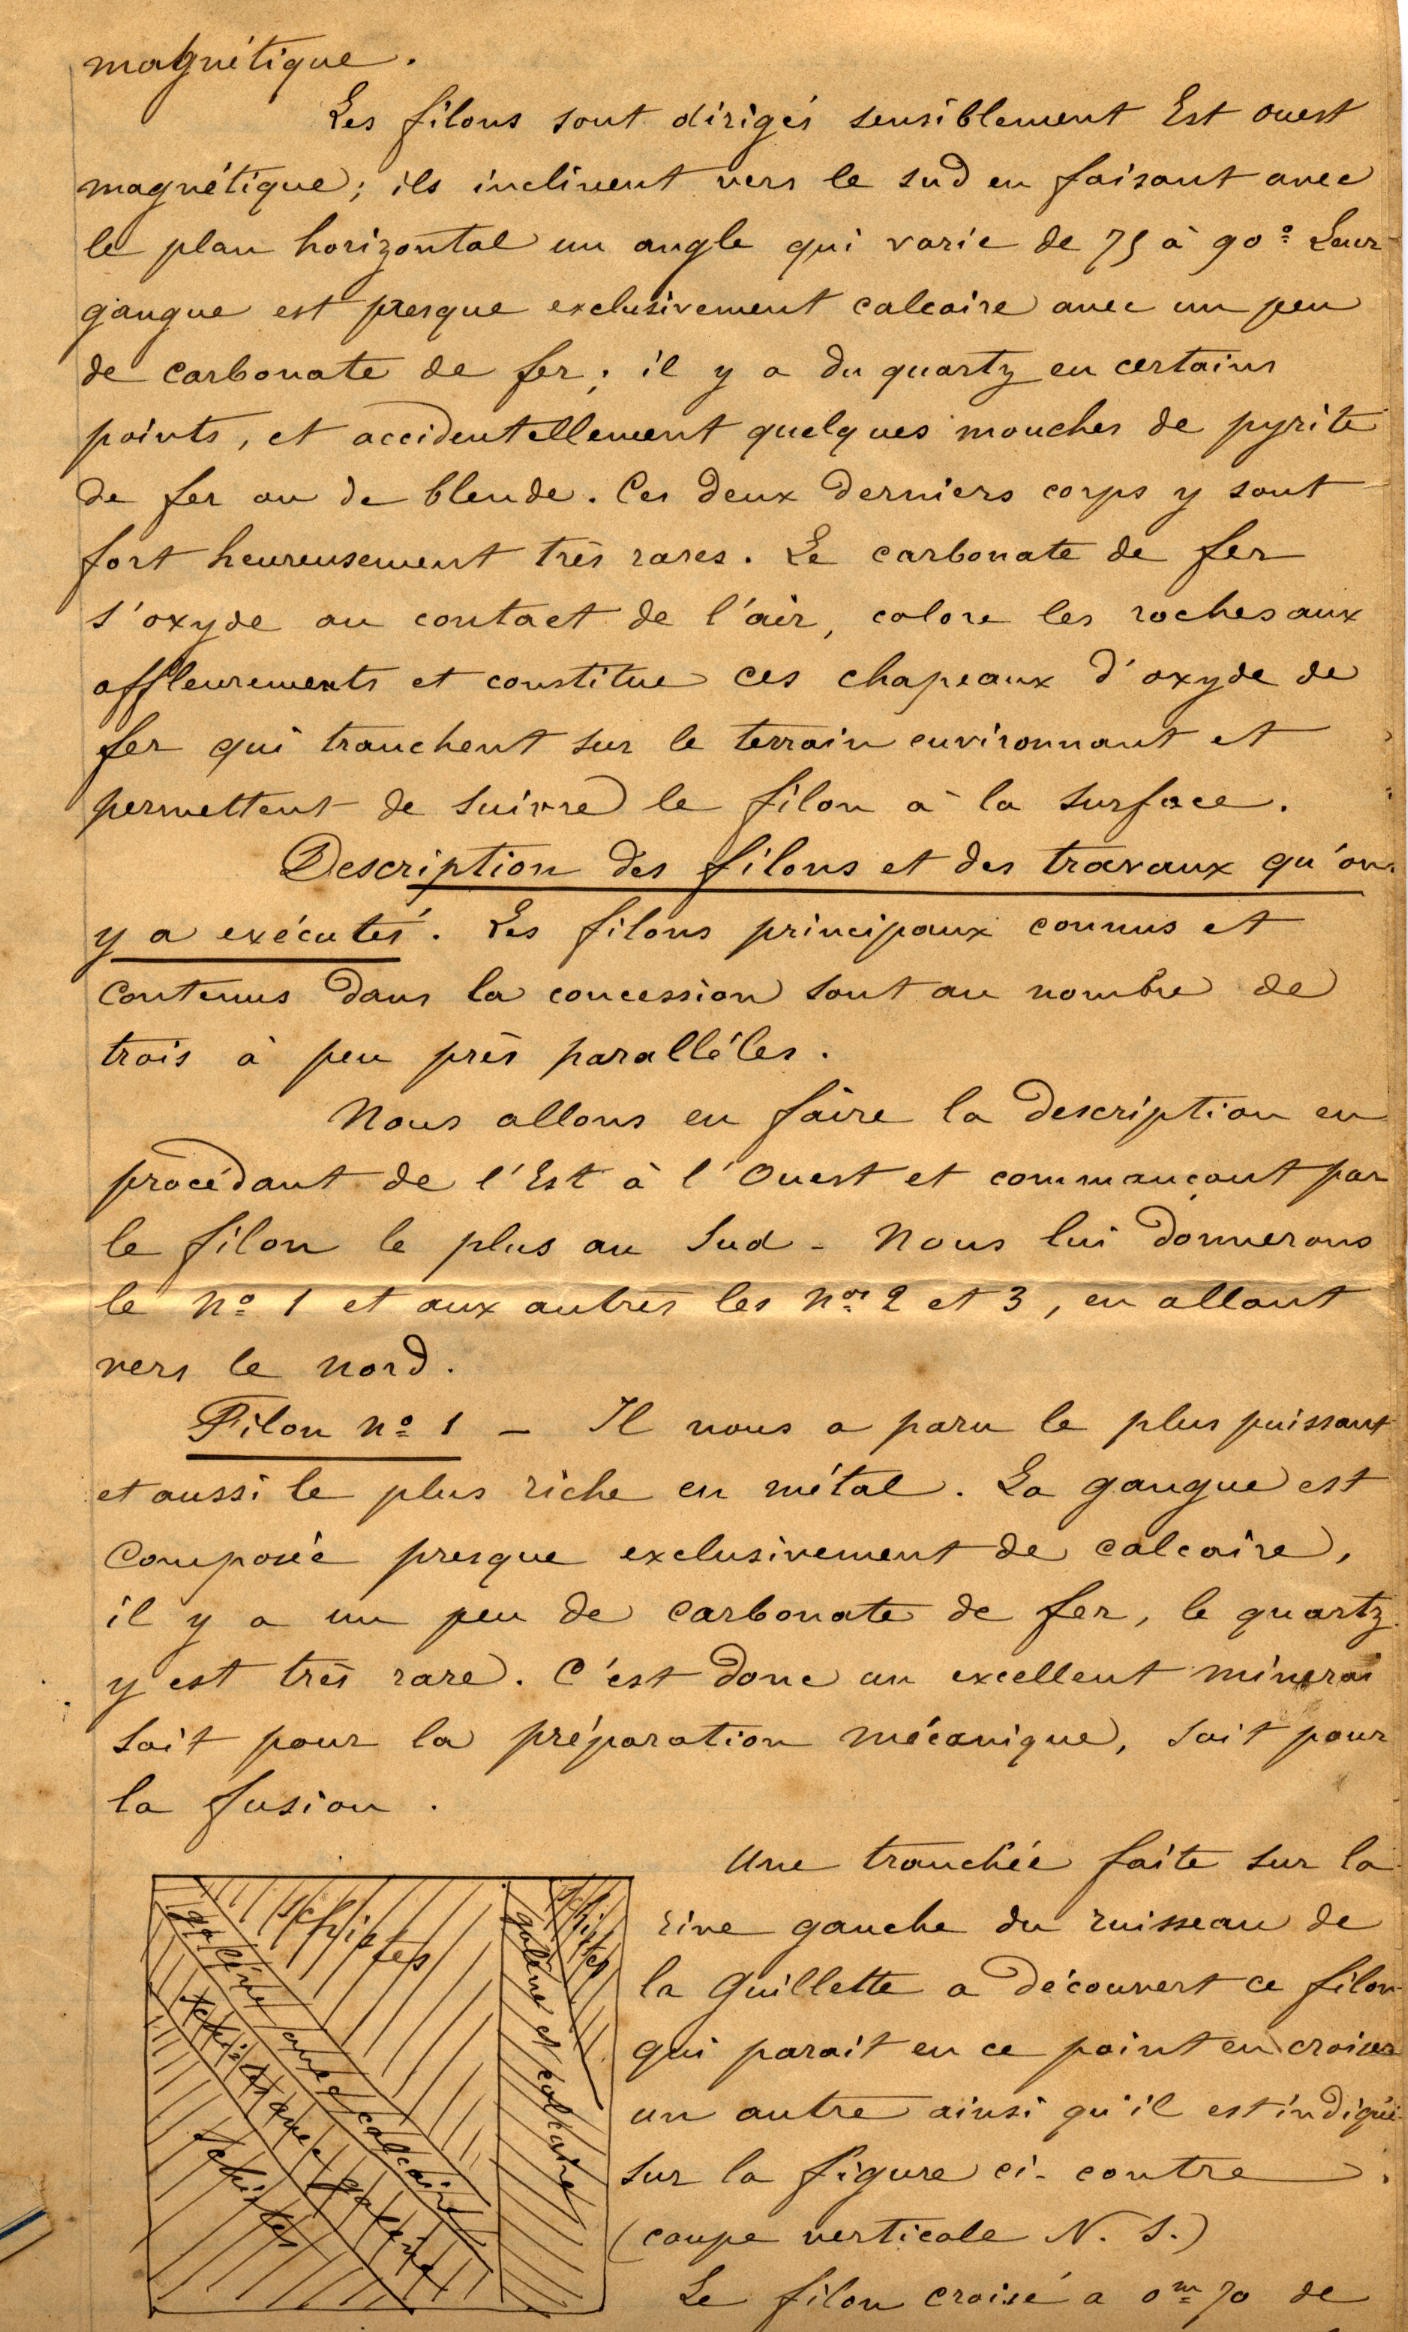 magnétique.
Les filons sont dirigés sensiblement Est ouest
magnétique; ils inclinent vers le sud en faisant avec
le plan horizontal un angle qui varie de 75 à 90° Leur
gangue est presque exclusivement calcaire avec un peu
de carbonate de fer; il y a du quartz en certains
points, et accidentellement quelques mouches de pyrite
de fer ou de blende. Ces deux derniers corps y sont
fort heureusement très rares. Le carbonate de fer
s'oxyde au contact de l'air, colore les roches aux
affleurements et constitue ces chapeaux d'oxyde de
fer qui tranchent sur le terrain environnant et
permettent de suivre le filon à la surface.
Description des filons et des travaux qu'on
y a exécutés. Les filons principaux connus et
contenus dans la concession sont au nombre de
trois à peu près parallèles.
Nous allons en faire la description en
procédant de l'Est à l'Ouest et commençant par
le filon le plus au Sud - Nous lui donnerons
le no 1 et aux autres les nos 2 et 3, en allant
vers le nord.
Filon no 1 - Il nous a paru le plus puissant
et aussi le plus riche en métal. La gangue est
composée presque exclusivement de calcaire,
il y a un peu de carbonate de fer, le quartz
y est très rare. C'est donc un excellent minerai
soit pour la préparation mécanique, soit pour
la fusion.
Une tranchée faite sur la
rive gauche du ruisseau de
la Guillette a découvert ce filon
qui parait en ce point en croiser
un autre ainsi qu'il est indiqué
sur la figure ci-contre.
(coupe verticale N. S.)
Le filon croisé a 0m 70 de
schistes
schistes
galène avec calcaire
galène et calcaire
schistes avec galène
schistes